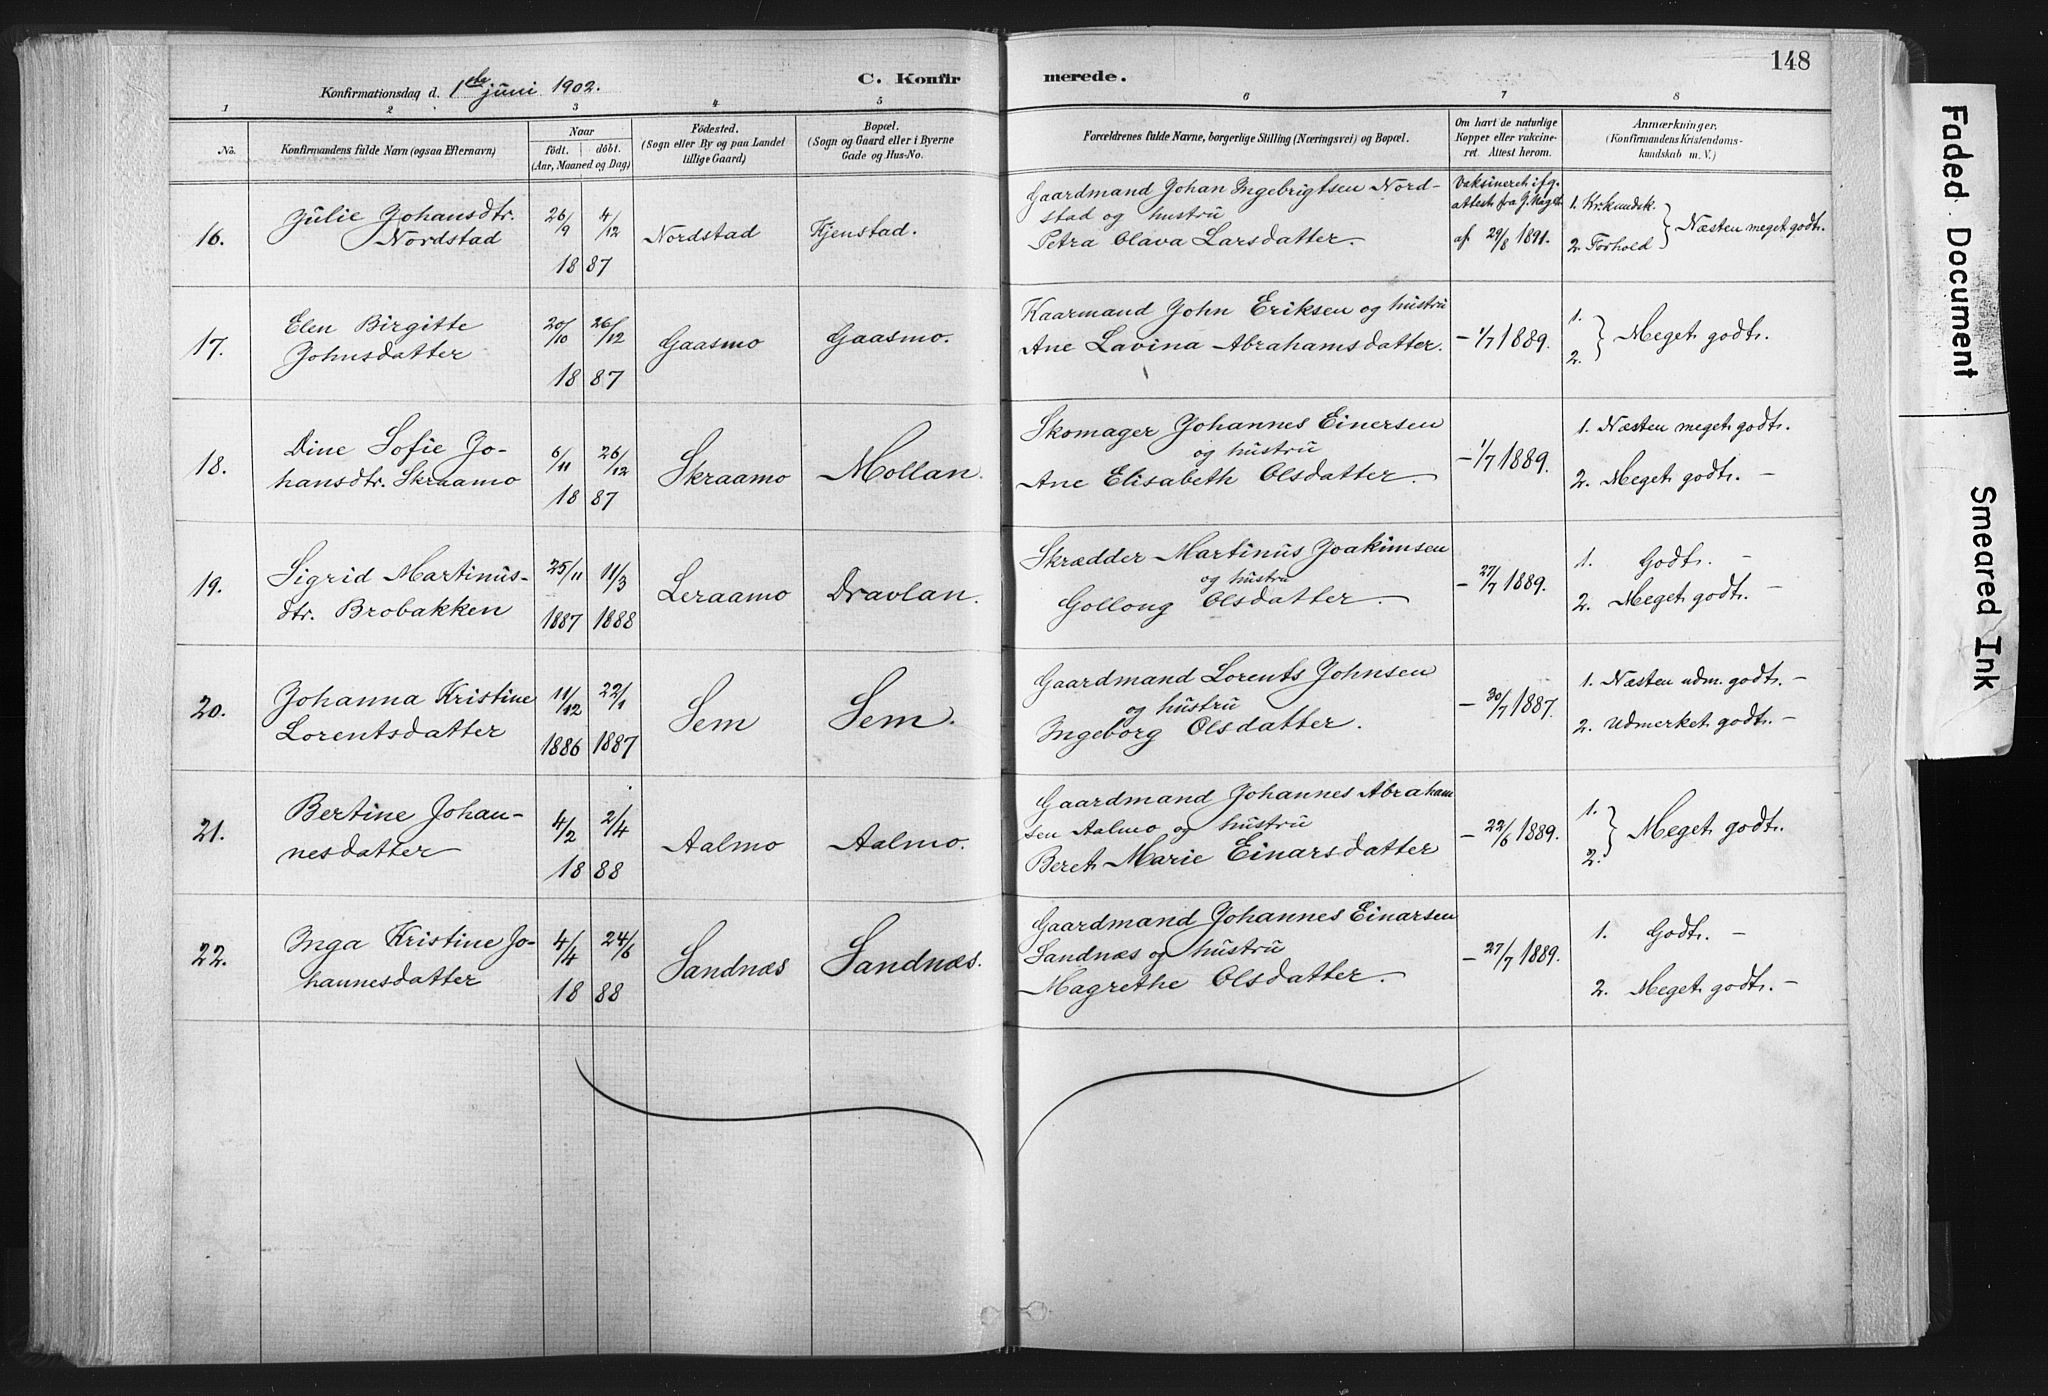 148
C. Konfirmerede.
Konfirmationsdag d. 1ste juni 1902.
1 2 3 4 5 6 7 8
No.
Konfirmandens fulde Navn (ogsaa Efternavn)
Naar
födt. döbt.
(Aar, Maaned og Dag)
Födested.
(Sogn eller By og paa Landet
tillige Gaard)
Bopæl.
(Sogn og Gaard eller i Byerne
Gade og Hus-No.
Forældrenes fulde Navne, borgerlige Stilling (Næringsvei) og Bopæl.
Om havt de naturlige
Kopper eller vakcine-
ret. Attest herom.
Anmærkninger.
(Konfirmandens Kristendoms-
kundskab m. V.)
16.
Julie Johansdtr.
Nordstad
26/9 4/12
18 87
Nordstad
Kjenstad.
Gaardmand Johan Ingebrigtsen Nord-
stad og hustru
Petra Olava Larsdatter.
Vaksineret ifg.
attest fra
af 29/8 1891.
1. Kr.kundsk.
2. Forhold
Næsten meget godt.
17.
Elen Birgitte
Johnsdatter
20/10 26/12
18 87
Gaasmo
Gaasmo.
Kaarmand John Eriksen og hustru
Ane Lavina Abrahamsdatter.
- 1/7 1889.
1.
2.
Meget godt.
18.
Dine Sofie Jo-
hansdtr. Skraamo
6/11 26/12
18 87
Skraamo
Mollan.
Skomager Johannes Einersen
og hustru
Ane Elisabeth Olsdatter.
- 1/7 1889.
1. Næsten meget godt.
2. Meget godt. -
19.
Sigrid Martinus-
dtr. Brobakken
25/11 11/3
1887 1888
Leraamo
Dravlan.
Skrædder Martinus Joakimsen
og hustru
Gollong Olsdatter.
- 27/7 1889.
1. Godt. -
2. Meget godt. -
20.
Johanna Kristine
Lorentsdatter
11/12 22/1
1886 1887
Sem
Sem.
Gaardmand Lorents Johnsen
og hustru
Ingeborg Olsdatter.
- 30/7 1887.
1. Næsten udm. godt. -
2. Udmerket godt. -
21.
Bertine Johan-
nesdatter
4/2 2/4
18 88
Aalmo
Aalmo.
Gaardmand Johannes Abraham
sen Aalmo og hustru
Beret Marie Einarsdatter
- 22/6 1889.
1.
2.
Meget godt.
22.
Inga Kristine Jo-
hannesdatter
4/4 24/6
18 88
Sandnæs
Sandnæs.
Gaardmand Johannes Einarsen
Sandnæs og hustru
Magrethe Olsdatter.
- 27/7 1889.
1. Godt. -
2. Meget godt. -
Faded Document
Smeared Ink